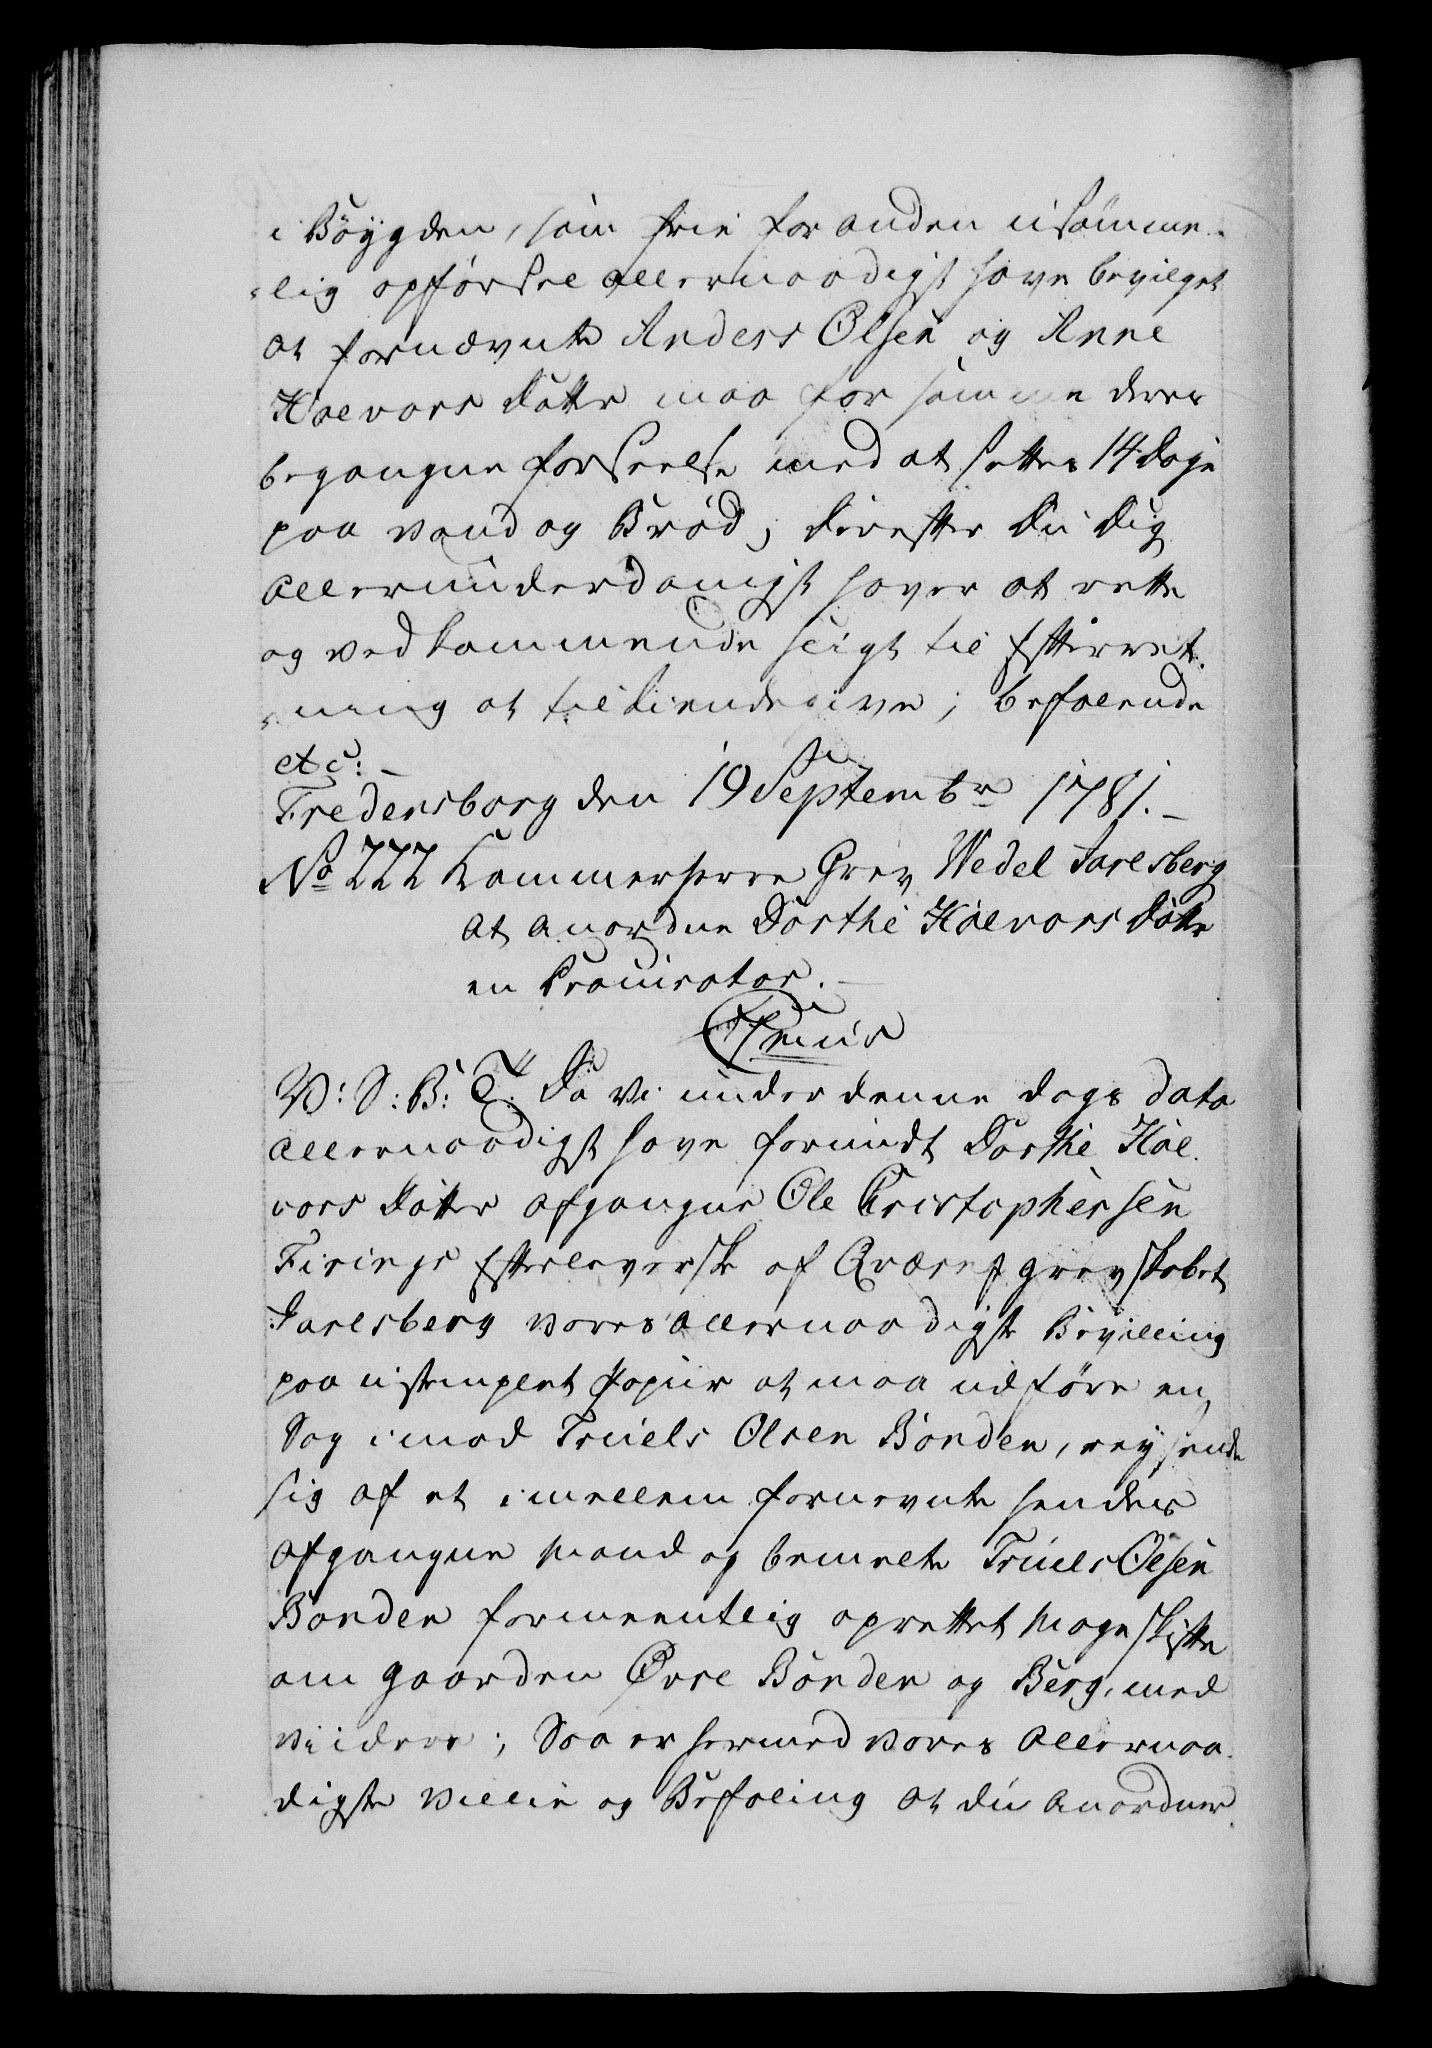 i Böÿgden, som frie for anden usömme-
-lig opförsel allernaadigst have bevilget
at fornævnte Anders Olsen og Anne
Halvors Datter maa for samme deres
begangne forseelse med at settes 14 Dage
paa vand og Bröd; derefter Du Dig
allerunderdanigst haver at rette
og vedkommende sligt til Efterret-
-ning at tilkiendegive; befalende
etc: –
Fredensborg den 19 Septembr 1781. –
No 222 Kammerherre Grev Wedel Jarlsberg
at anordne Dorthe Halvors Datter
en Procurator. –

V: S: B: T. Da Vi under denne dags dato
allernaadigst have forundt Dorthe Hal-
vors Datter afgangne Ole Cristophersen
Firings Efterleverske af Qværns grevskabet
Jarlsberg vores allernaadigste Bevilling
paa ustemplet papiir at maa udföre en
Sag imod Truels Olsen Bonden, reysende
sig af et imellem fornevnte hendes
afgangne mand og bemelte Truels Olsen
Bonden formeentlig oprettet Mageskifte
om gaarden Øvre Bonden og Berg, med
viidere; Saa er hermed vores allernaa-
digste villie og Befaling at du anordner